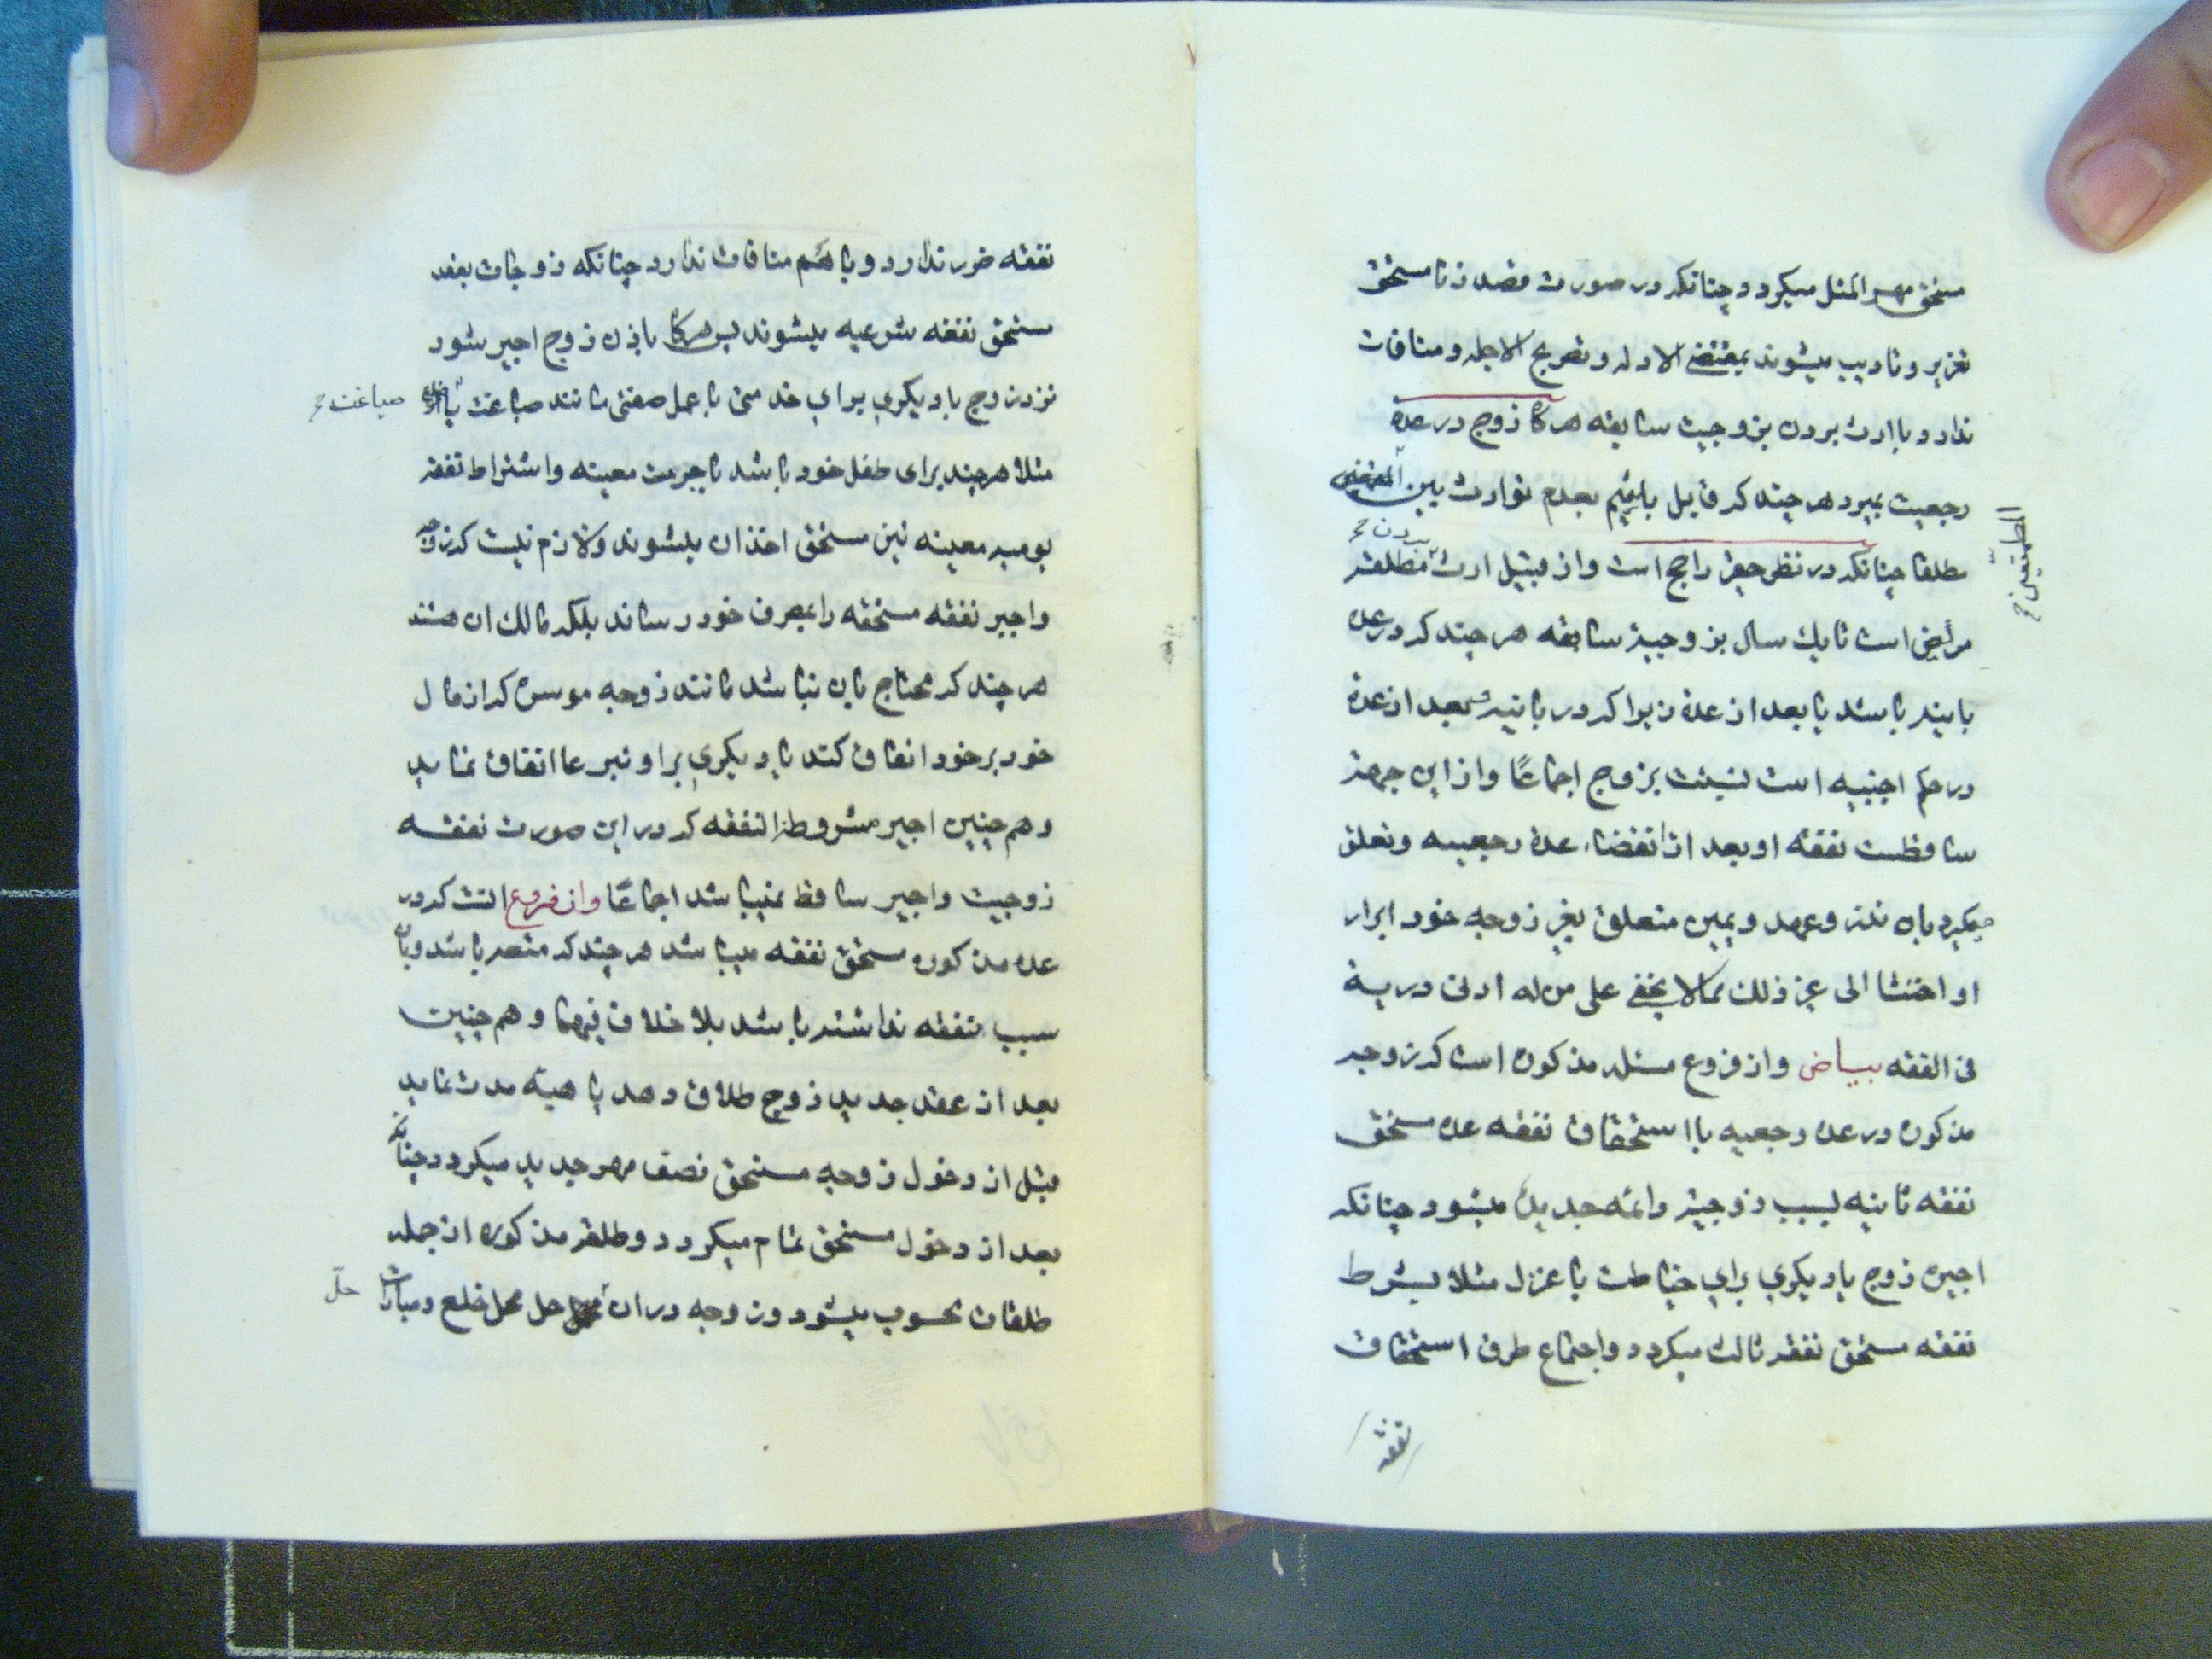 مستحق مهر المثل میکردد چنانکه در صورت قصد زنا مستحق
تعزیر و تادیب میشوند بمقتضی الادله و تصریح الاجله و منافات
ندارد با ارث بردن بزوجیت سابقه هرکاه زوج در عدهٔ
رجعیت بمیرد هر چند که قایل باشیم بعدم توارث بین
المطلقین
مطلقا چنانکه در نظر حقیر راجح است و از قبیل ارث مطلقه
مریض است تا یك سال بزوجیة سابقه هر چند که در عده
باینه باشد یا بعد از عده زیرا که در باینه و بعد از عدهٔ
در حکم اجنبیه است نسبت بزوج اجماعًا و از این جهة
ساقطست نفقه او بعد از انقضاء عدهٔ رجعیه و تعلق
میکیرد بان نذر و عهد و یمین متعلق بغیر زوجه خود ابرار
او اخنثا الی غیر ذلك مما لا یخفی علی من له ادنی دریة
فی الفقه بیاض و از فروع مسئله مذکوره است که زوجه
مذکوره در عده رجعیه با استحقاق نفقه عده مستحق
نفقه ثانیه بسبب زوجیة دائمه جدیده میشود چنانکه
اجیره زوج یا دیکری برای خیاطت یا غزل مثلا بشرط
نفقه مستحق نفقه ثالث میکردد و اجتماع طرق استحقاق
نفقه
نفقه ضرر ندارد و با هم منافات ندارد چنانکه زوجات بعقد
مستحق نفقه شرعیه میشوند پس هرکاه باذن زوج اجیر شود
نزد زوج یا دیکری برای خدمتی یا عمل صنعتی مانند صباغت یا
صباغت
مثلا هرچند برای طفل خود باشد باجرت معینه و اشتراط نفقه
یومیه معینه نیز مستحق اخذ ان میشوند و لازم نیست که زوجه
و اجیر نفقه مستحقه را بمصرف خود رساند بلکه مالك ان هستند
هر چند که محتاج بان نباشد مانند زوجه موسره که از مال
خود بر خود انفاق کند یا دیکری بر او تبرعا انفاق نماید
و هم چنین اجیر مشروطة النفقه که در این صورت نفقه
زوجیت و اجیر ساقط نمیباشد اجماعًا و از فروع انست که در
عده مذکوره مستحق نفقه میباشد هر چند که باشد و بان
سبب نفقه نداشته باشد بلا خلاف فیهما و هم چنین
بعد از عقد جدید زوج طلاق دهد یا هبه مدت نماید
قبل از دخول زوجه مستحق نصف مهر جدید میکردد چنانکه
بعد از دخول مستحق تمام میکردد و طلقه مذکوره از جمله
طلقات محسوب میشود و زوجه در ان محل حل محل خلع و مبارات
حل